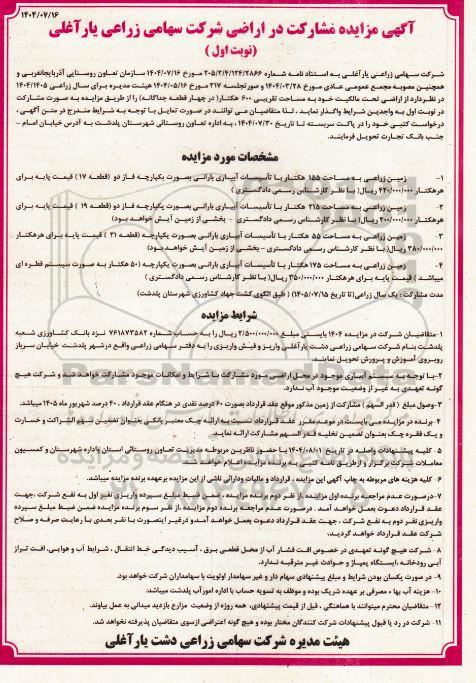 ۱۴۰۴/۰۷/۱۶
آگهی مزایده مشارکت در اراضی شرکت سهامی زراعی یارآغلی
(نوبت اول)
شرکت سهامی زراعی یارآغلی به استناد نامه شماره ۲۰۵/۲/۴/۱۲۴/۲۸۶۶ مورخ ۱۴۰۴/۰۷/۱۶ سازمان تعاون روستایی آذربایجانغربی و
همچنین مصوبه مجمع عمومی عادی مورخ ۱۴۰۴/۰۳/۲۸ و صورتجلسه ۲۱۷ مورخ ۱۴۰۴/۰۵/۱۶ هیئت مدیره برای سال زراعی ۱۴۰۴/۱۴۰۵
در نظر دارد از اراضی تحت مالکیت خود به مساحت تقریبی ۶۰۰ هکتار( در چهار قطعه جداگانه) را از طریق مزایده به صورت مشارکت
در نوبت اول به واجدین شرایط واگذار نماید . لذا متقاضیان می توانند در صورت تمایل با توجه به شرایط مندرج در متن آگهی ،
درخواست کتبی خود را در پاکت سربسته تا تاریخ ۱۴۰۴/۰۷/۳۰ ، به اداره تعاون روستائی شهرستان پلدشت به آدرس خیابان امام -
جنب بانک تجارت تحویل فرمایند.
مشخصات مورد مزایده
۱- زمین زراعی به مساحت ۱۵۵ هکتار با تأسیسات آبیاری بارانی بصورت یکپارچه فاز دو (قطعه ۱۷) قیمت پایه برای
هرهکتار ۴۲۰/۰۰۰/۰۰۰ ریال( با نظر کارشناس رسمی دادگستری )
۲- زمین زراعی به مساحت ۲۱۵ هکتار با تأسیسات آبیاری بارانی بصورت یکپارچه فاز دو (قطعه ۱۹ ) قیمت پایه برای
هرهکتار ۴۰۰/۰۰۰/۰۰۰ ریال( با نظر کارشناس رسمی دادگستری - بخشی از زمین آیش خواهد بود)
۳- زمین زراعی به مساحت ۵۵ هکتار با تأسیسات آبیاری بارانی بصورت یکپارچه (قطعه ۲۱ ) قیمت پایه برای هرهکتار
۳۸۰/۰۰۰/۰۰۰ ریال( با نظر کارشناس رسمی دادگستری - بخشی از زمین آیش خواهد بود)
۴- زمین زراعی به مساحت ۱۷۵ هکتار با تأسیسات آبیاری بارانی بصورت یکپارچه (۵۰ هکتار به صورت سیستم قطره ای
میباشد ) قیمت پایه برای هرهکتار ۳۵۰/۰۰۰/۰۰۰ ریال( با نظر کارشناس رسمی دادگستری )
مدت مشارکت : یک سال زراعی(تا تاریخ ۱۴۰۵/۰۷/۱۵) ( طبق الگوی کشت جهاد کشاورزی شهرستان پلدشت)
شرایط مزایده
۱- متقاضیان شرکت در مزایده ۱۴۰۴ بایستی مبلغ ۲/۵۰۰/۰۰۰/۰۰۰ ریال را به حساب شماره ۷۶۱۸۷۳۵۸۲ نزد بانک کشاورزی شعبه
پلدشت بنام شرکت سهامی زراعی دشت یارآغلی واریز و فیش واریزی را به دفتر سهامی زراعی واقع درشهر پلدشت خیابان سرباز
روبروی آموزش و پرورش تحویل نمایند.
۲-با توجه به سیستم آبیاری موجود در محل اراضی مورد مشارکت با شرایط و امکانات موجود مشارکت خواهد شد و شرکت هیچ
گونه تعهدی به غیر از وضعیت موجود آب ندارد.
۳-وصول مبلغ ( قدر السهم ) مشارکت از زمین مذکور موقع عقد قرارداد بصورت ۶۰ درصد نقدی در هنگام عقد قرارداد . ۴۰ درصد شهریور ماه ۱۴۰۵ میباشد.
۴- برنده در مزایده می بایست در موعد مقرر عقد قرارداد نسبت به ارائه چک معتبر بانکی بعنوان تضمین سهم الشراکت و خسارت
و یک فقره چک بعنوان تضمین تخلیه قدر السهم مشارکت ارائه نماید.
۵- کلیه پیشنهادات واصله در تاریخ ۱۴۰۴/۰۸/۰۱ با حضور ناظرین مربوطه مدیریت تعاون روستائی استان واداره شهرستان و کمسیون
معاملات شرکت برگزار و از طریق نامه کتبی به برنده مزایده اعلام خواهد شد.
۶- کلیه هزینه های مربوطه به چاپ آگهی این مزایده ، قرارداد و مالیات ودارائی ناشی از این مزایده برعهده برنده مزایده میباشد.
۷-درصورت عدم مراجعه برنده اول مزایده ،از نفر دوم برنده مزایده ، دعوت و ضمن ضبط مبلغ سپرده واریزی نفر اول به نفع شرکت ،جهت
عقد قرارداد دعوت بعمل خواهد آمد . درصورت عدم مراجعه برنده دوم مزایده ،از نفر سوم برنده مزایده ضمن ضبط مبلغ سپرده
واریزی نفر دوم به نفع شرکت ، جهت عقد قرارداد دعوت بعمل خواهد آمد و درغیر اینصورت با نفر بعدی با رعایت صرفه و صلاح
شرکت عقد قرارداد خواهد گردید.
۸- شرکت هیچ گونه تعهدی در خصوص افت فشار آب از محل قطعی برق ، آسیب دیدگی خط انتقال ، شرایط آب و هوایی، افت تراز
آبی رودخانه ،ایستگاه پمپاژ و حوادث غیر مترقبه ندارد.
۹- در صورت یکسان بودن شرایط و مبلغ پیشنهادی سهام دار و غیر سهامدار اولویت با سهامداران شرکت خواهد بود.
۱۰- هزینه آب بها ، مصرفی بر عهده شریک بوده و موظف به تسویه حساب با اداره امورآب پلدشت میباشد.
۱۲- متقاضیان محترم میتوانند با هماهنگی ، قبل از قیمت پیشنهادی، همه روزه از وضعیت مزارع بازدید میدانی به عمل بیاورند.
۱۱- شرکت در رد یا قبول پیشنهادات شرکت کنندگان مختار بوده و هیچ گونه اعتراضی ازسوی متقاضیان پذیرفته نخواهد شد.
هیئت مدیره شرکت سهامی زراعی دشت یارآغلی